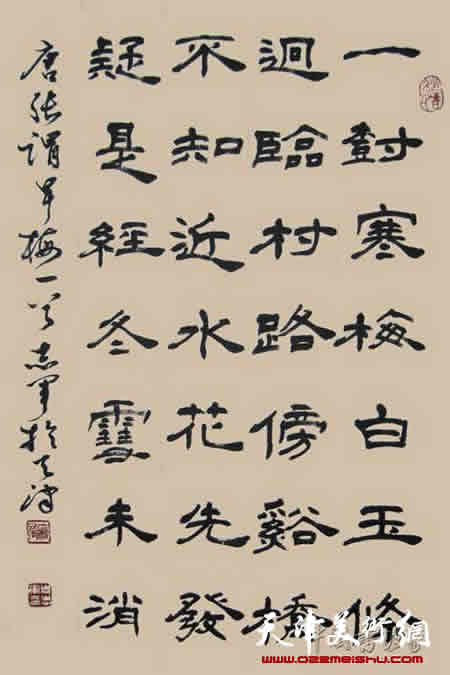 一對寒梅白玉條
迥臨村路傍谿橋
不知近水花先發
疑是經冬雪未消
唐张謂早梅一首志軍於天津
天津美術網
www.022meishu.com